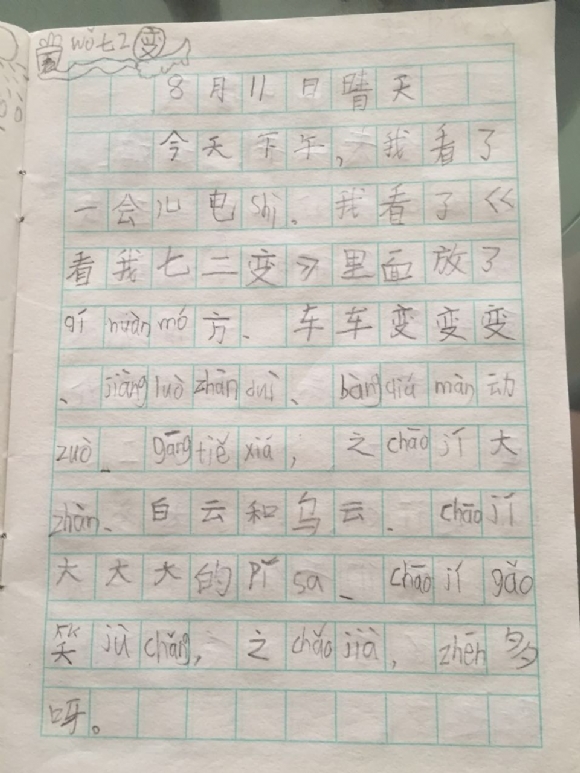 wǒ七2变
8月11日晴天
今天下午，我看了
一会儿电shì。我看了《
看我七二变》里面放了
qí nuǎn mó方、车车变变变
、jiàng luò zhān duì、bàng qiú màn动
zuò、gāng tiě xiá，之chāo jí大
zhàn、白云和乌云、chāo jí
大大大的pǐ sa、chāo jí gǎo
笑jù chǎng，之chǎo jià，zhēn多
呀。